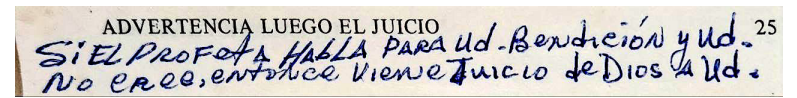 ADVERTENCIA LUEGO EL JUICIO 25
Si EL PROFetA HABLA PARA Ud. Bendición y Ud.
No CRee, entonce Viene Juicio de Dios A Ud.